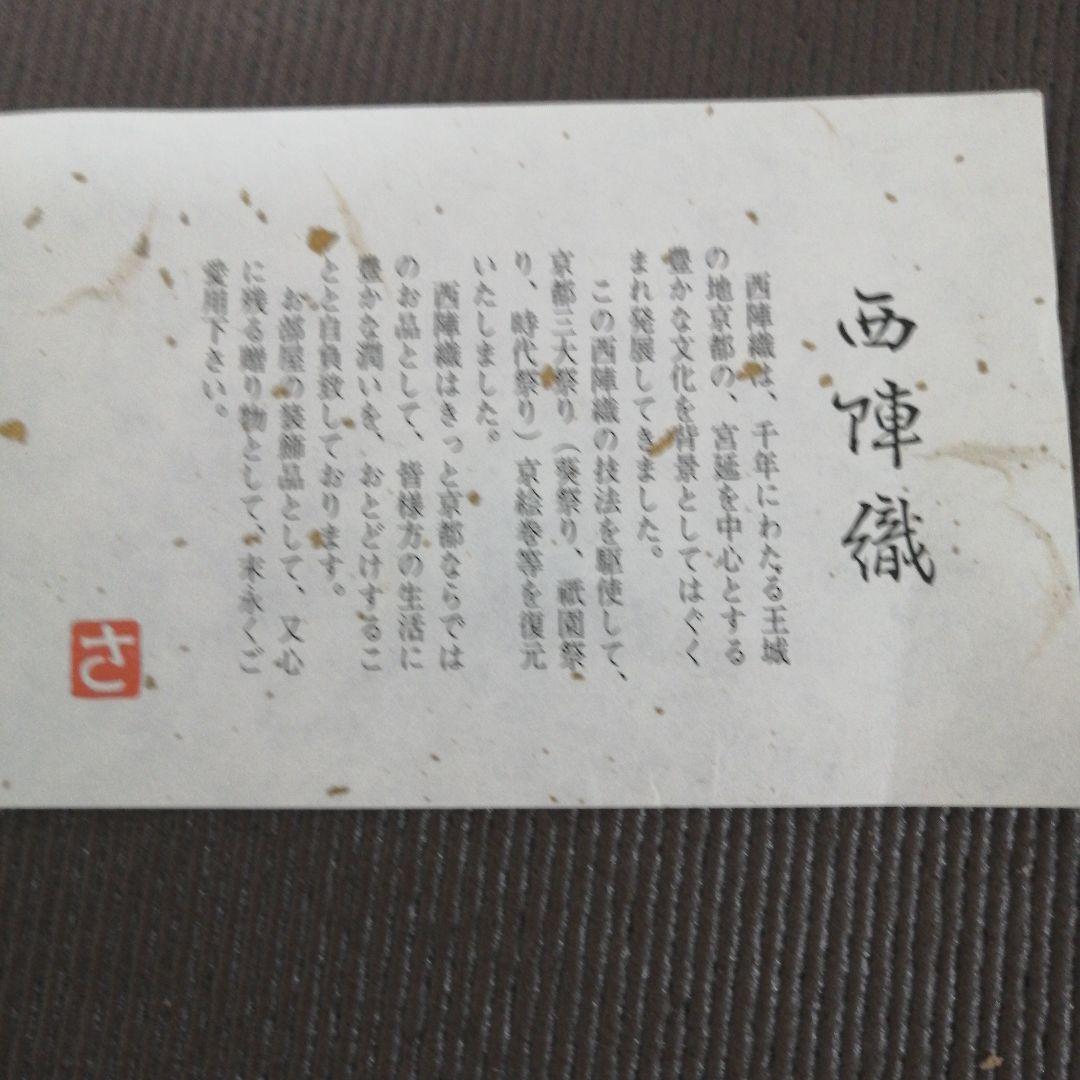 西陣織
西陣織は、千年にわたる王城
の地京都の、宮延を中心とする
豊かな文化を背景としてはぐく
まれ発展してきました。
この西陣織の技法を駆使して、
京都三大祭り（葵祭り、祇園祭
り、時代祭り）京絵巻等を復元
いたしました。
西陣織はきっと京都ならでは
のお品として、皆様方の生活に
豊かな潤いを、おとどけするこ
とと自負致しております。
お部屋の装飾品として、又心
に残る贈り物として、末永くご
愛用下さい。
さ